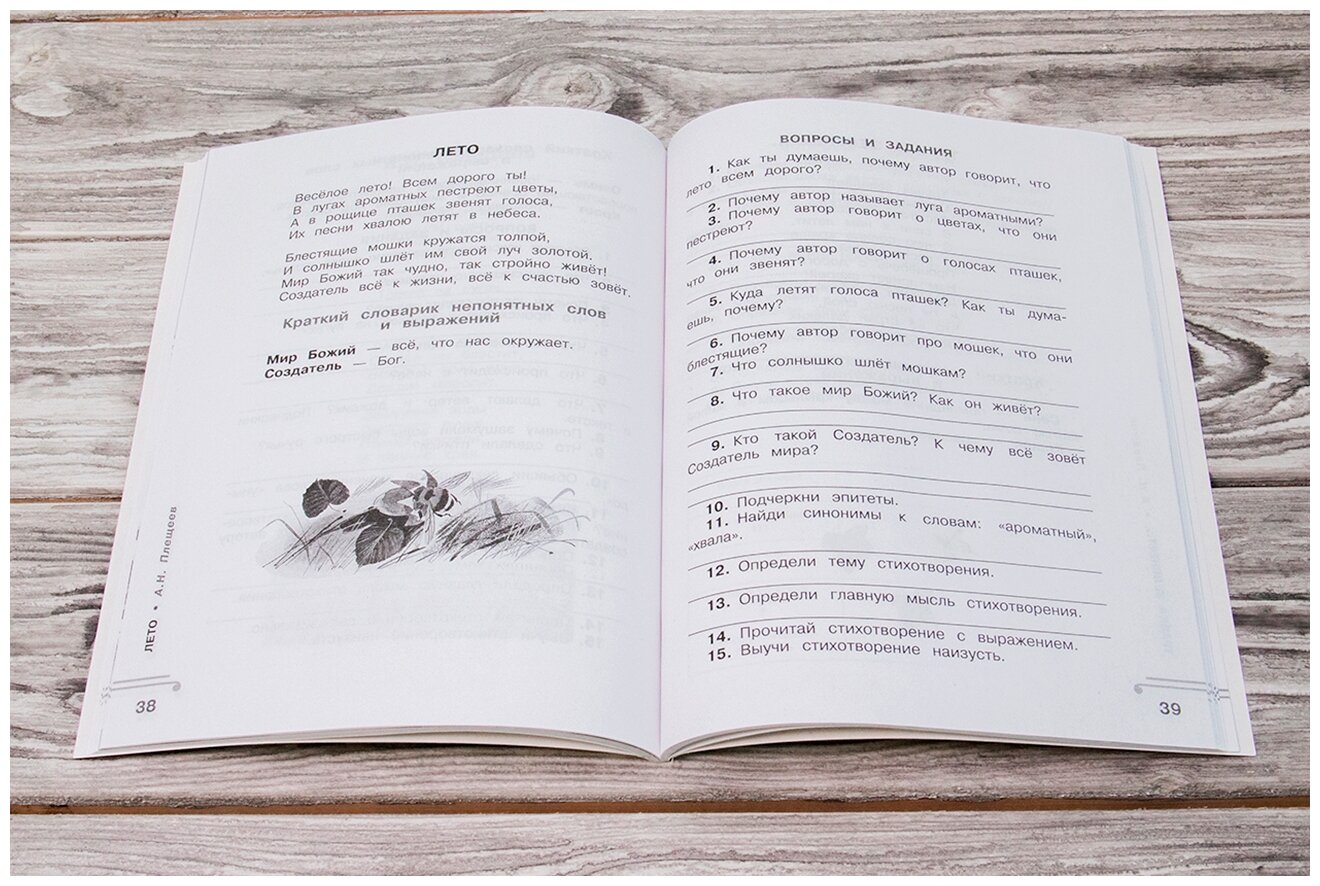 ЛЕТО
Весёлое лето! Всем дорого ты!
В лугах ароматных пестреют цветы,
А в рощице пташек звенят голоса,
Их песни хвалою летят в небеса.
Блестящие мошки кружатся толпой,
И солнышко шлёт им свой луч золотой.
Мир Божий так чудно, так стройно живёт!
Создатель всё к жизни, всё к счастью зовёт.
Краткий словарик непонятных слов
и выражений
Мир Божий — всё, что нас окружает.
Создатель — Бог.
ЛЕТО • А.Н. Плещеев
38
ВОПРОСЫ И ЗАДАНИЯ
1. Как ты думаешь, почему автор говорит, что
лето всем дорого?
2. Почему автор называет луга ароматными?
3. Почему автор говорит о цветах, что они
пестреют?
4. Почему автор говорит о голосах пташек,
что они звенят?
5. Куда летят голоса пташек? Как ты дума-
ешь, почему?
6. Почему автор говорит про мошек, что они
блестящие?
7. Что солнышко шлёт мошкам?
8. Что такое мир Божий? Как он живёт?
9. Кто такой Создатель? К чему всё зовёт
Создатель мира?
10. Подчеркни эпитеты.
11. Найди синонимы к словам: «ароматный»,
«хвала».
12. Определи тему стихотворения.
13. Определи главную мысль стихотворения.
14. Прочитай стихотворение с выражением.
15. Выучи стихотворение наизусть.
39